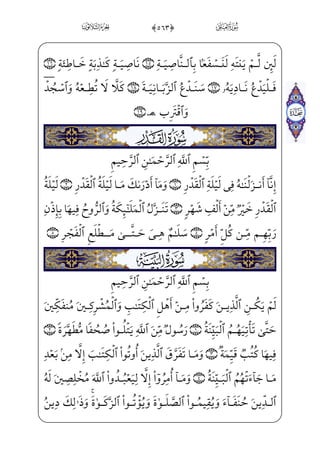 الجزء الثلاثون ﴿٥٦٣﴾ سورة العلق
لَئِن لَّمْ يَنتَهِ لَنَسْفَعًۢا بِٱلنَّاصِيَةِ ۝١٥ نَاصِيَةٍ كَـٰذِبَةٍ خَاطِئَةٍ ۝١٦
فَلْيَدْعُ نَادِيَهُۥ ۝١٧ سَنَدْعُ ٱلزَّبَانِيَةَ ۝١٨ كَلَّا لَا تُطِعْهُ وَٱسْجُدْ
وَٱقْتَرِب ۩ ۝١٩
سجدة
سُورَةُ ٱلْقَدْرِ
بِسْمِ ٱللَّهِ ٱلرَّحْمَـٰنِ ٱلرَّحِيمِ
إِنَّآ أَنزَلْنَـٰهُ فِى لَيْلَةِ ٱلْقَدْرِ ۝١ وَمَآ أَدْرَىٰكَ مَا لَيْلَةُ ٱلْقَدْرِ ۝٢ لَيْلَةُ
ٱلْقَدْرِ خَيْرٌ مِّنْ أَلْفِ شَهْرٍ ۝٣ تَنَزَّلُ ٱلْمَلَـٰٓئِكَةُ وَٱلرُّوحُ فِيهَا بِإِذْنِ
رَبِّهِم مِّن كُلِّ أَمْرٍ ۝٤ سَلَـٰمٌ هِىَ حَتَّىٰ مَطْلَعِ ٱلْفَجْرِ ۝٥
سُورَةُ ٱلْبَيِّنَةِ
بِسْمِ ٱللَّهِ ٱلرَّحْمَـٰنِ ٱلرَّحِيمِ
لَمْ يَكُنِ ٱلَّذِينَ كَفَرُوا۟ مِنْ أَهْلِ ٱلْكِتَـٰبِ وَٱلْمُشْرِكِينَ مُنفَكِّينَ
حَتَّىٰ تَأْتِيَهُمُ ٱلْبَيِّنَةُ ۝١ رَسُولٌ مِّنَ ٱللَّهِ يَتْلُوا۟ صُحُفًا مُّطَهَّرَةً ۝٢
فِيهَا كُتُبٌ قَيِّمَةٌ ۝٣ وَمَا تَفَرَّقَ ٱلَّذِينَ أُوتُوا۟ ٱلْكِتَـٰبَ إِلَّا مِنۢ بَعْدِ
مَا جَآءَتْهُمُ ٱلْبَيِّنَةُ ۝٤ وَمَآ أُمِرُوٓا۟ إِلَّا لِيَعْبُدُوا۟ ٱللَّهَ مُخْلِصِينَ لَهُ
ٱلدِّينَ حُنَفَآءَ وَيُقِيمُوا۟ ٱلصَّلَوٰةَ وَيُؤْتُوا۟ ٱلزَّكَوٰةَ ۚ وَذَٰلِكَ دِينُ